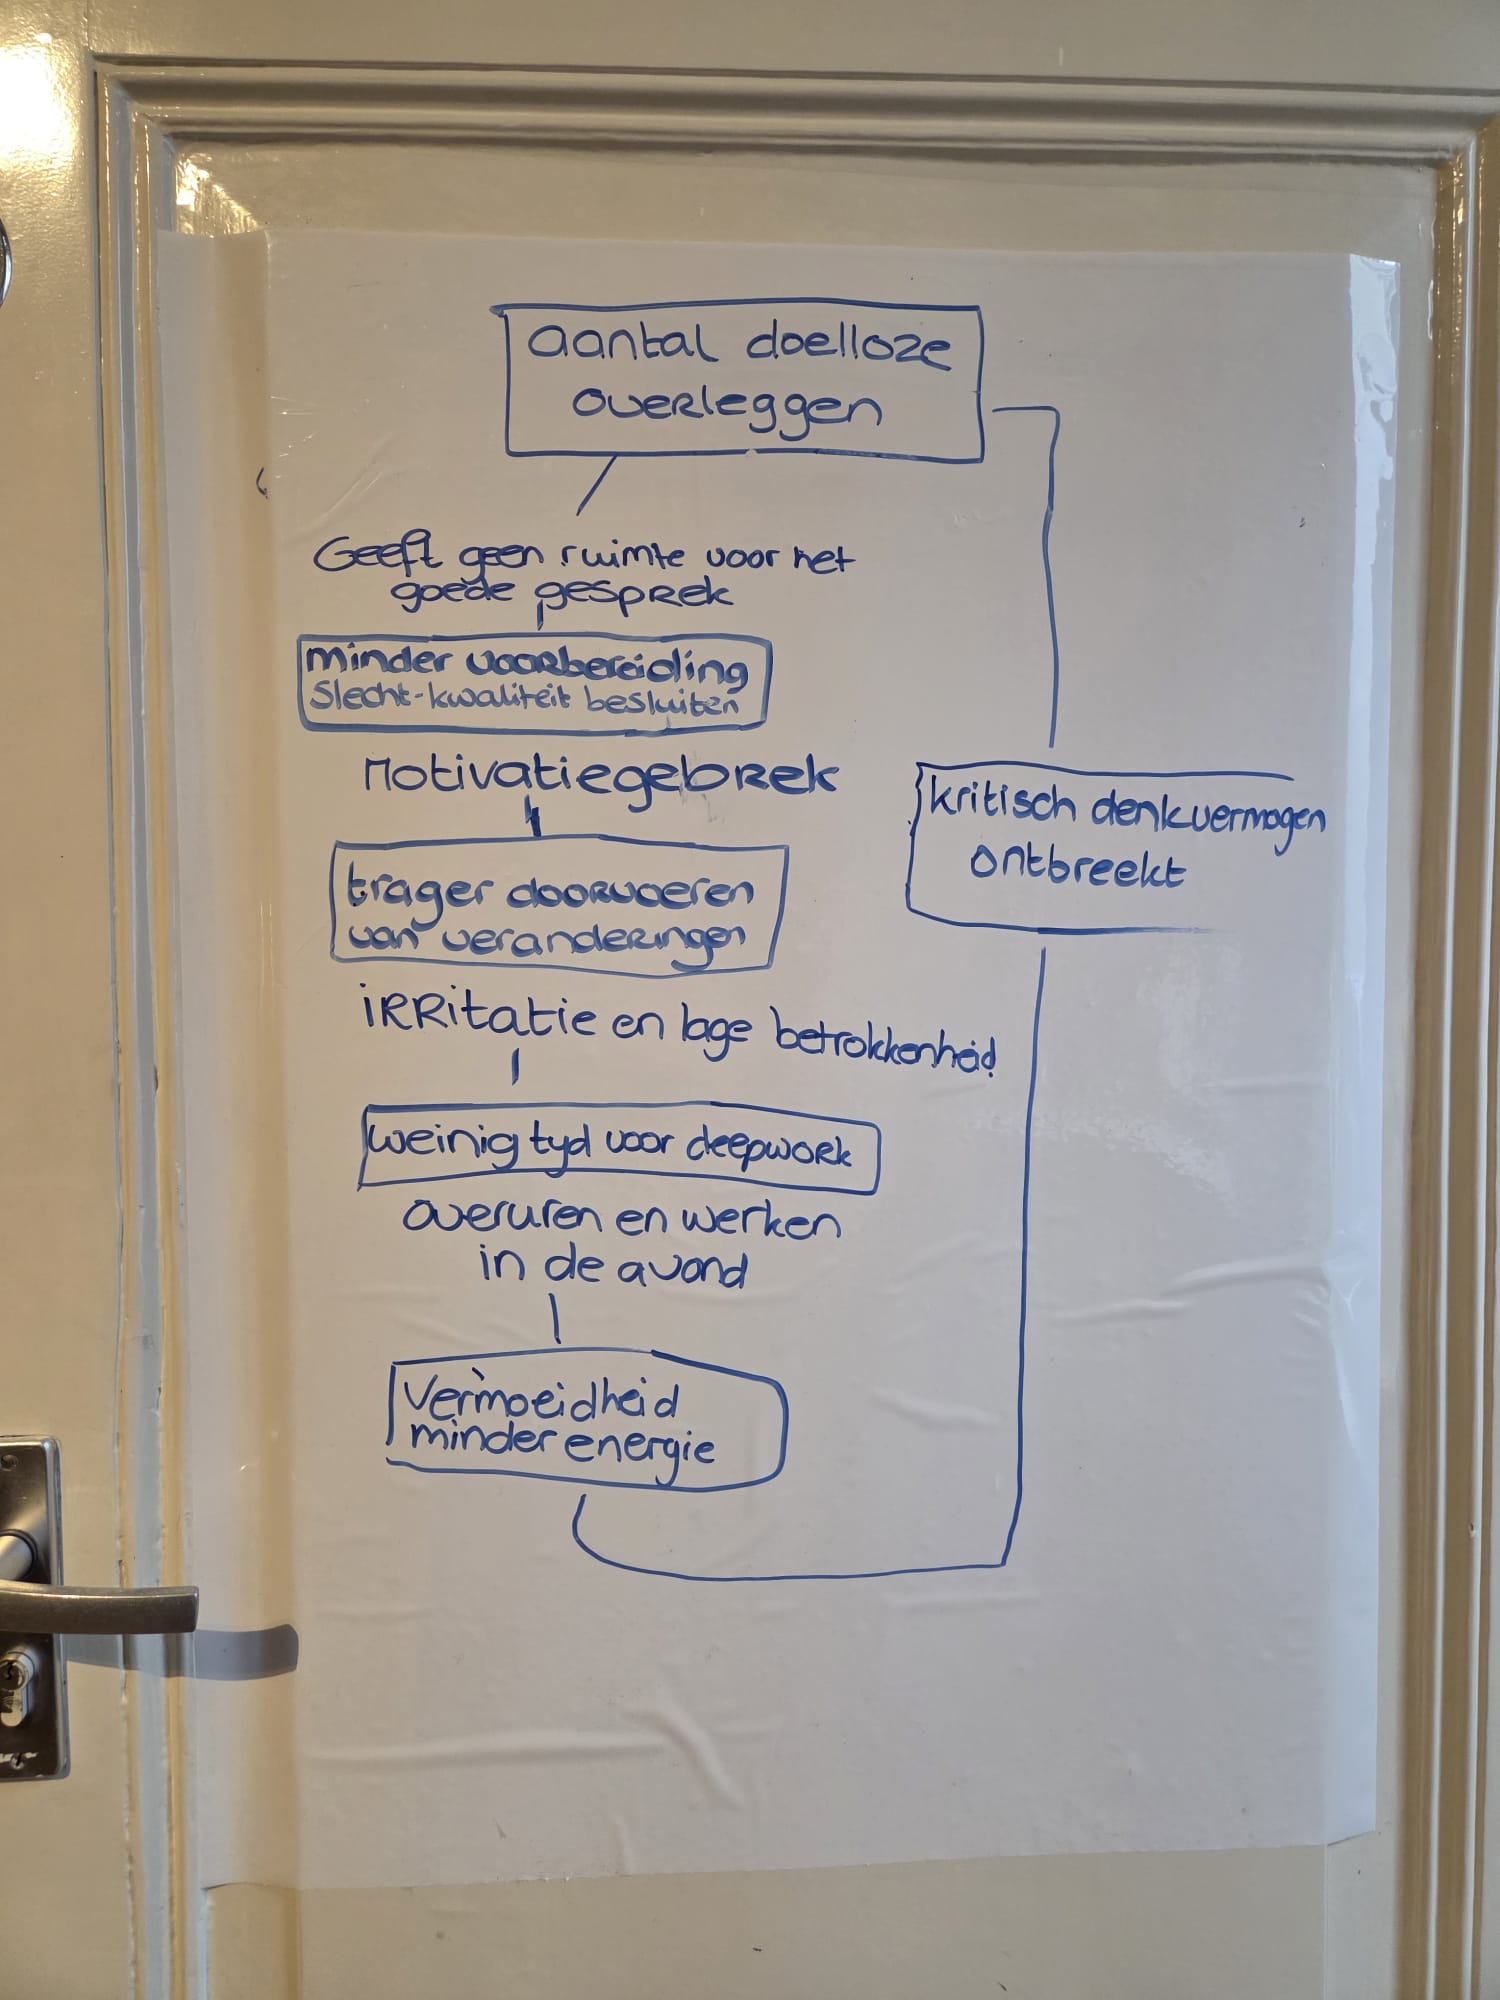 aantal doelloze
overleggen
Geeft geen ruimte voor het
goede gesprek
minder voorbereiding
Slecht-kwaliteit besluiten
Motivatiegebrek
kritisch denkvermogen
ontbreekt
trager doorvoeren
van veranderingen
irritatie en lage betrokkenheid
weinig tyd voor deepwork
overuren en werken
in de avond
Vermoeidheid
minder energie